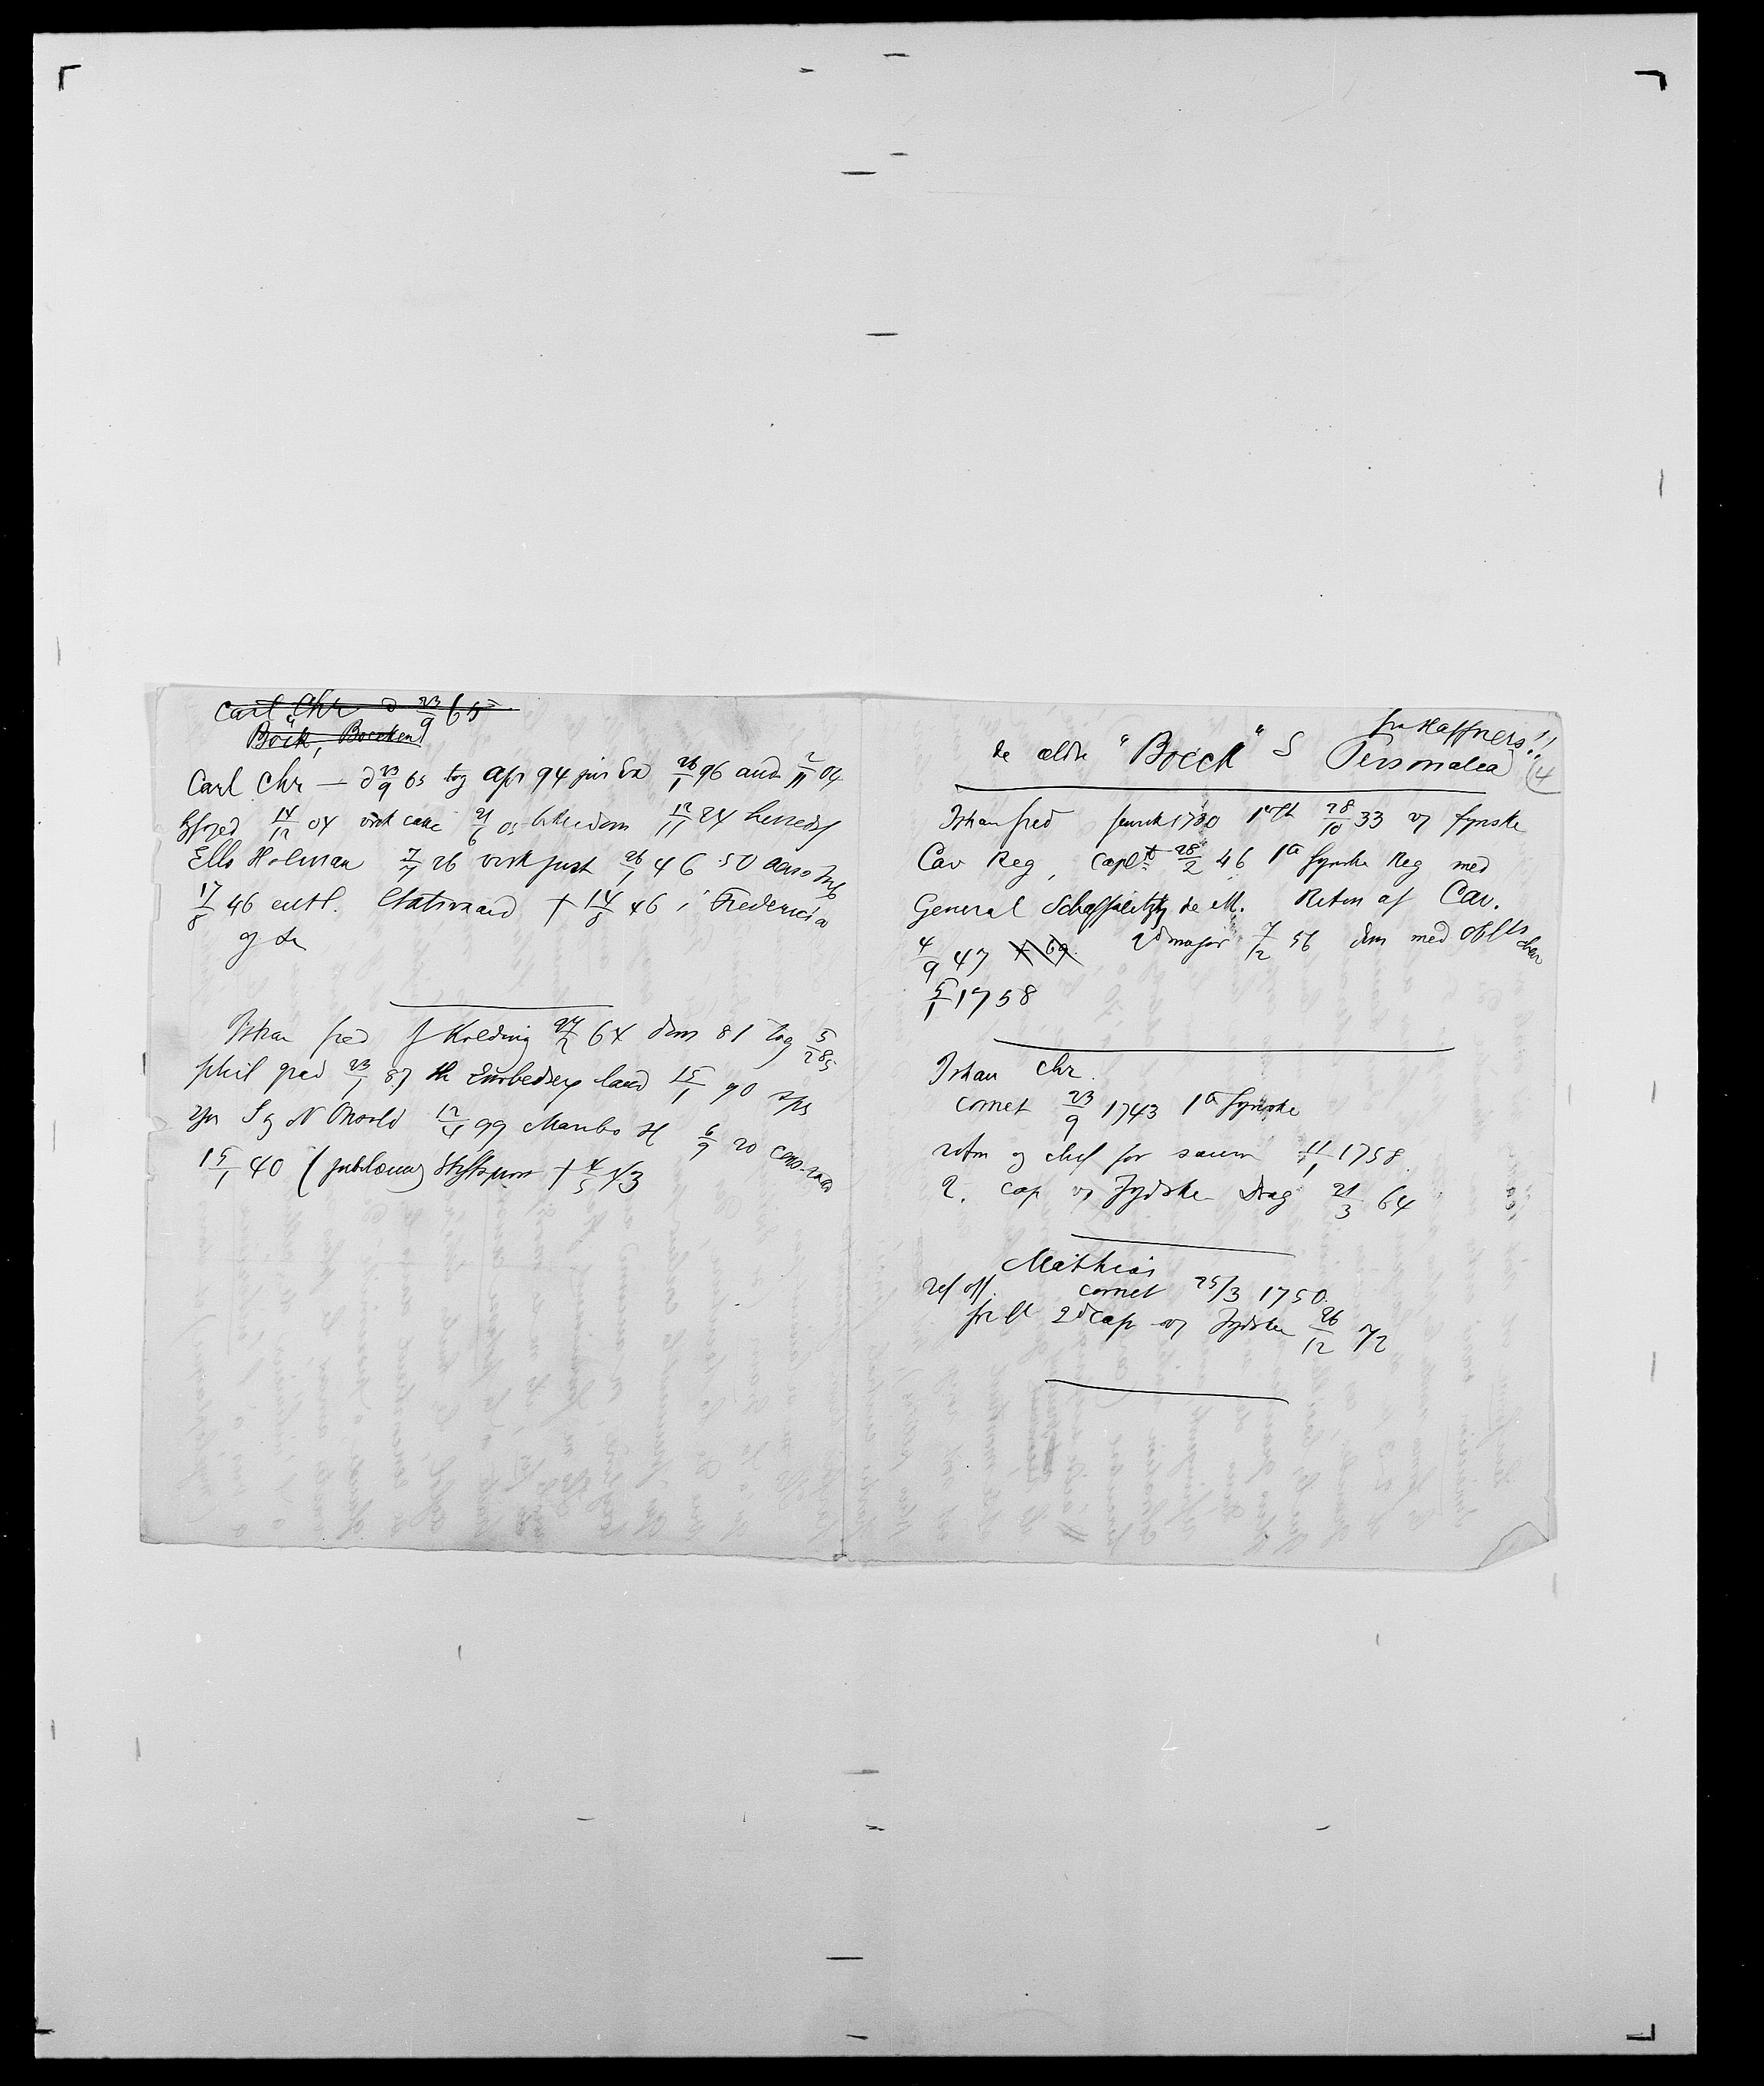 Carl Chr d 23/9 65
Böck, Boeckend
Carl Chr — d 23/9 65 tog apr 94 jur Ex 26/1 96 aud 2/11 04
14/12 04 virk 21/6 05 12/11 24 herredsf
Elbo Holman 7/7 26 virk just 26/1 46
17/8 46 entl. Etatsraad † 14/8 46 i Fredericia
og
Johan fred f Kolding 27/2 64 dim 81 tog 5/2 85
phil grad 23/1 87 15/1 90
S og N Onsild 12/4 99 Maribo H 6/9 20 cons-raad
15/1 40 (jubilæum) Stiftsprov † 4/5 43
fra Haffners!!
de ældre "Boeck" S Personalea (4
Johan fred fenrik 1730 28/10 33 v fynske
Cav Reg, capt 28/2 46 1ste fynske Reg med
General Schaffalitzky de M. Ritm af Cav.
4/9 47 † 69 2d major 7/2 56 dim med obflts char
5/1 1758
Johan Chr.
cornet 23/9 1743 1ste fynske
ritm og chef for samm 11/1 1758.
2. cap v Jydske Drag 21/3 64
Mathias
ref off. cornet 25/3 1750.
pr lt 2d cap v Jydske 26/12 72